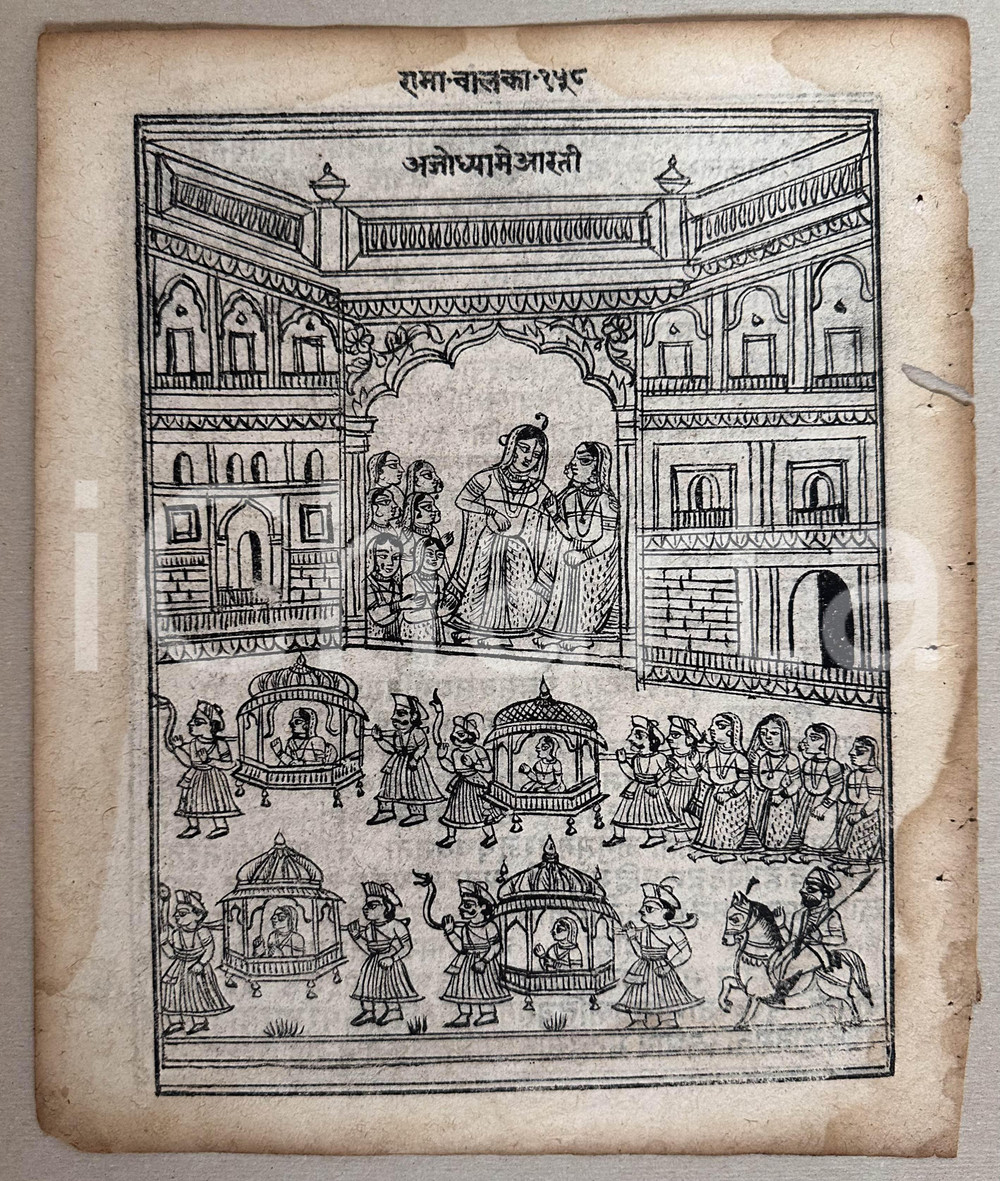 रामा·बालका·१५८
अजोध्यामेआरती